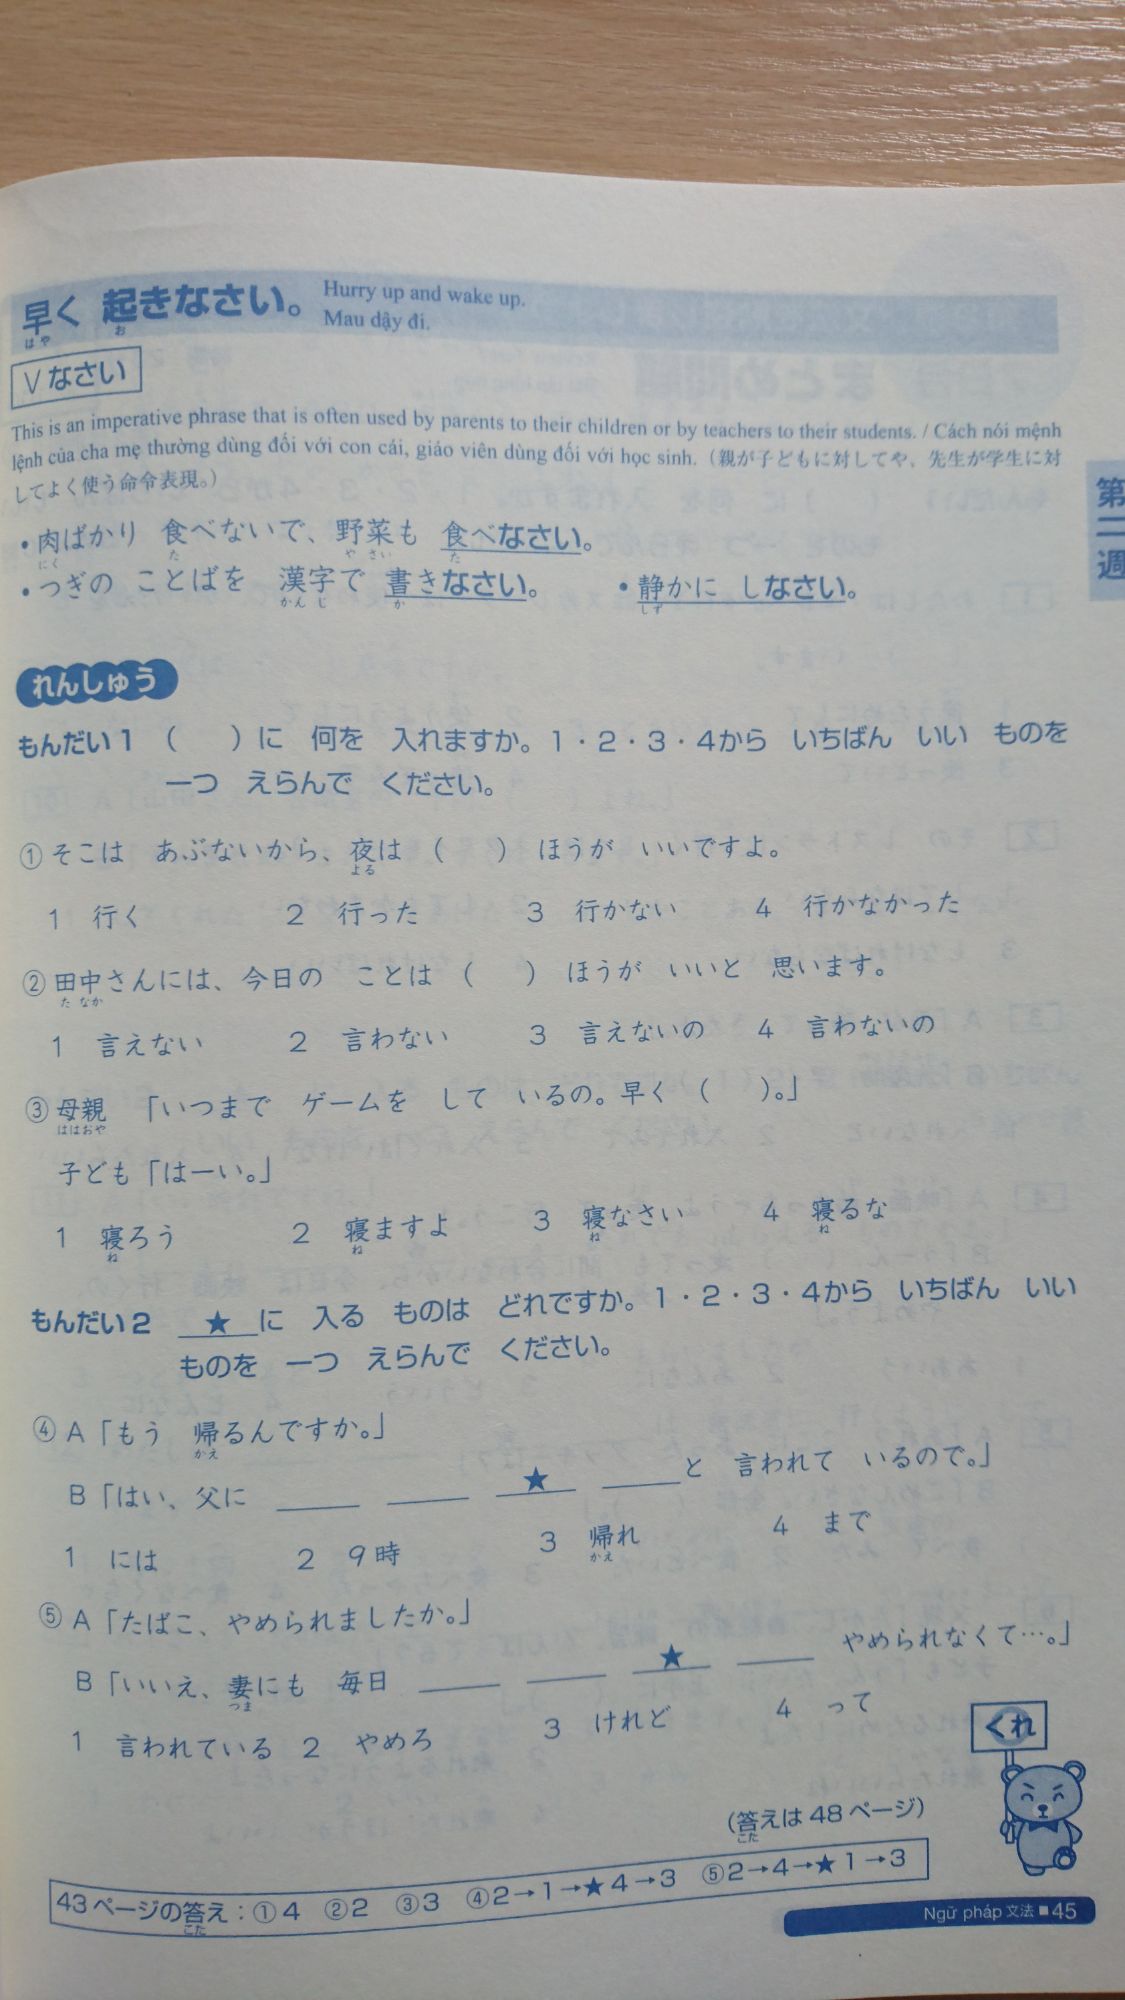 早く 起きなさい。 Hurry up and wake up.
はや お Mau dậy đi.
Vなさい
This is an imperative phrase that is often used by parents to their children or by teachers to their students. / Cách nói mệnh
lệnh của cha mẹ thường dùng đối với con cái, giáo viên dùng đối với học sinh.（親が子どもに対してや、先生が学生に対
してよく使う命令表現。）
・肉ばかり 食べないで、野菜も 食べなさい。
にく た や さい た
・つぎの ことばを 漢字で 書きなさい。 ・静かに しなさい。
かん じ か しず
第二週
れんしゅう
もんだい1 （ ）に 何を 入れますか。1・2・3・4から いちばん いい ものを
一つ えらんで ください。
①そこは あぶないから、夜は （ ） ほうが いいですよ。
よる
1 行く 2 行った 3 行かない 4 行かなかった
②田中さんには、今日の ことは （ ） ほうが いいと 思います。
た なか
1 言えない 2 言わない 3 言えないの 4 言わないの
③母親 「いつまで ゲームを して いるの。早く （ ）。」
ははおや
子ども「はーい。」
1 寝ろう 2 寝ますよ 3 寝なさい 4 寝るな
ね ね ね ね
もんだい2 ★に 入る ものは どれですか。1・2・3・4から いちばん いい
ものを 一つ えらんで ください。
④A「もう 帰るんですか。」
かえ
B「はい、父に ____ ____ ★ ____と 言われて いるので。」
1 には 2 9時 3 帰れ 4 まで
かえ
⑤A「たばこ、やめられましたか。」
B「いいえ、妻にも 毎日 ____ ____ ★ ____ やめられなくて…。」
つま
1 言われている 2 やめろ 3 けれど 4 って
くれ
（答えは48ページ）
こた
43ページの答え：①4 ②2 ③3 ④2→1→★4→3 ⑤2→4→★1→3
こた
Ngữ pháp 文法 ■45